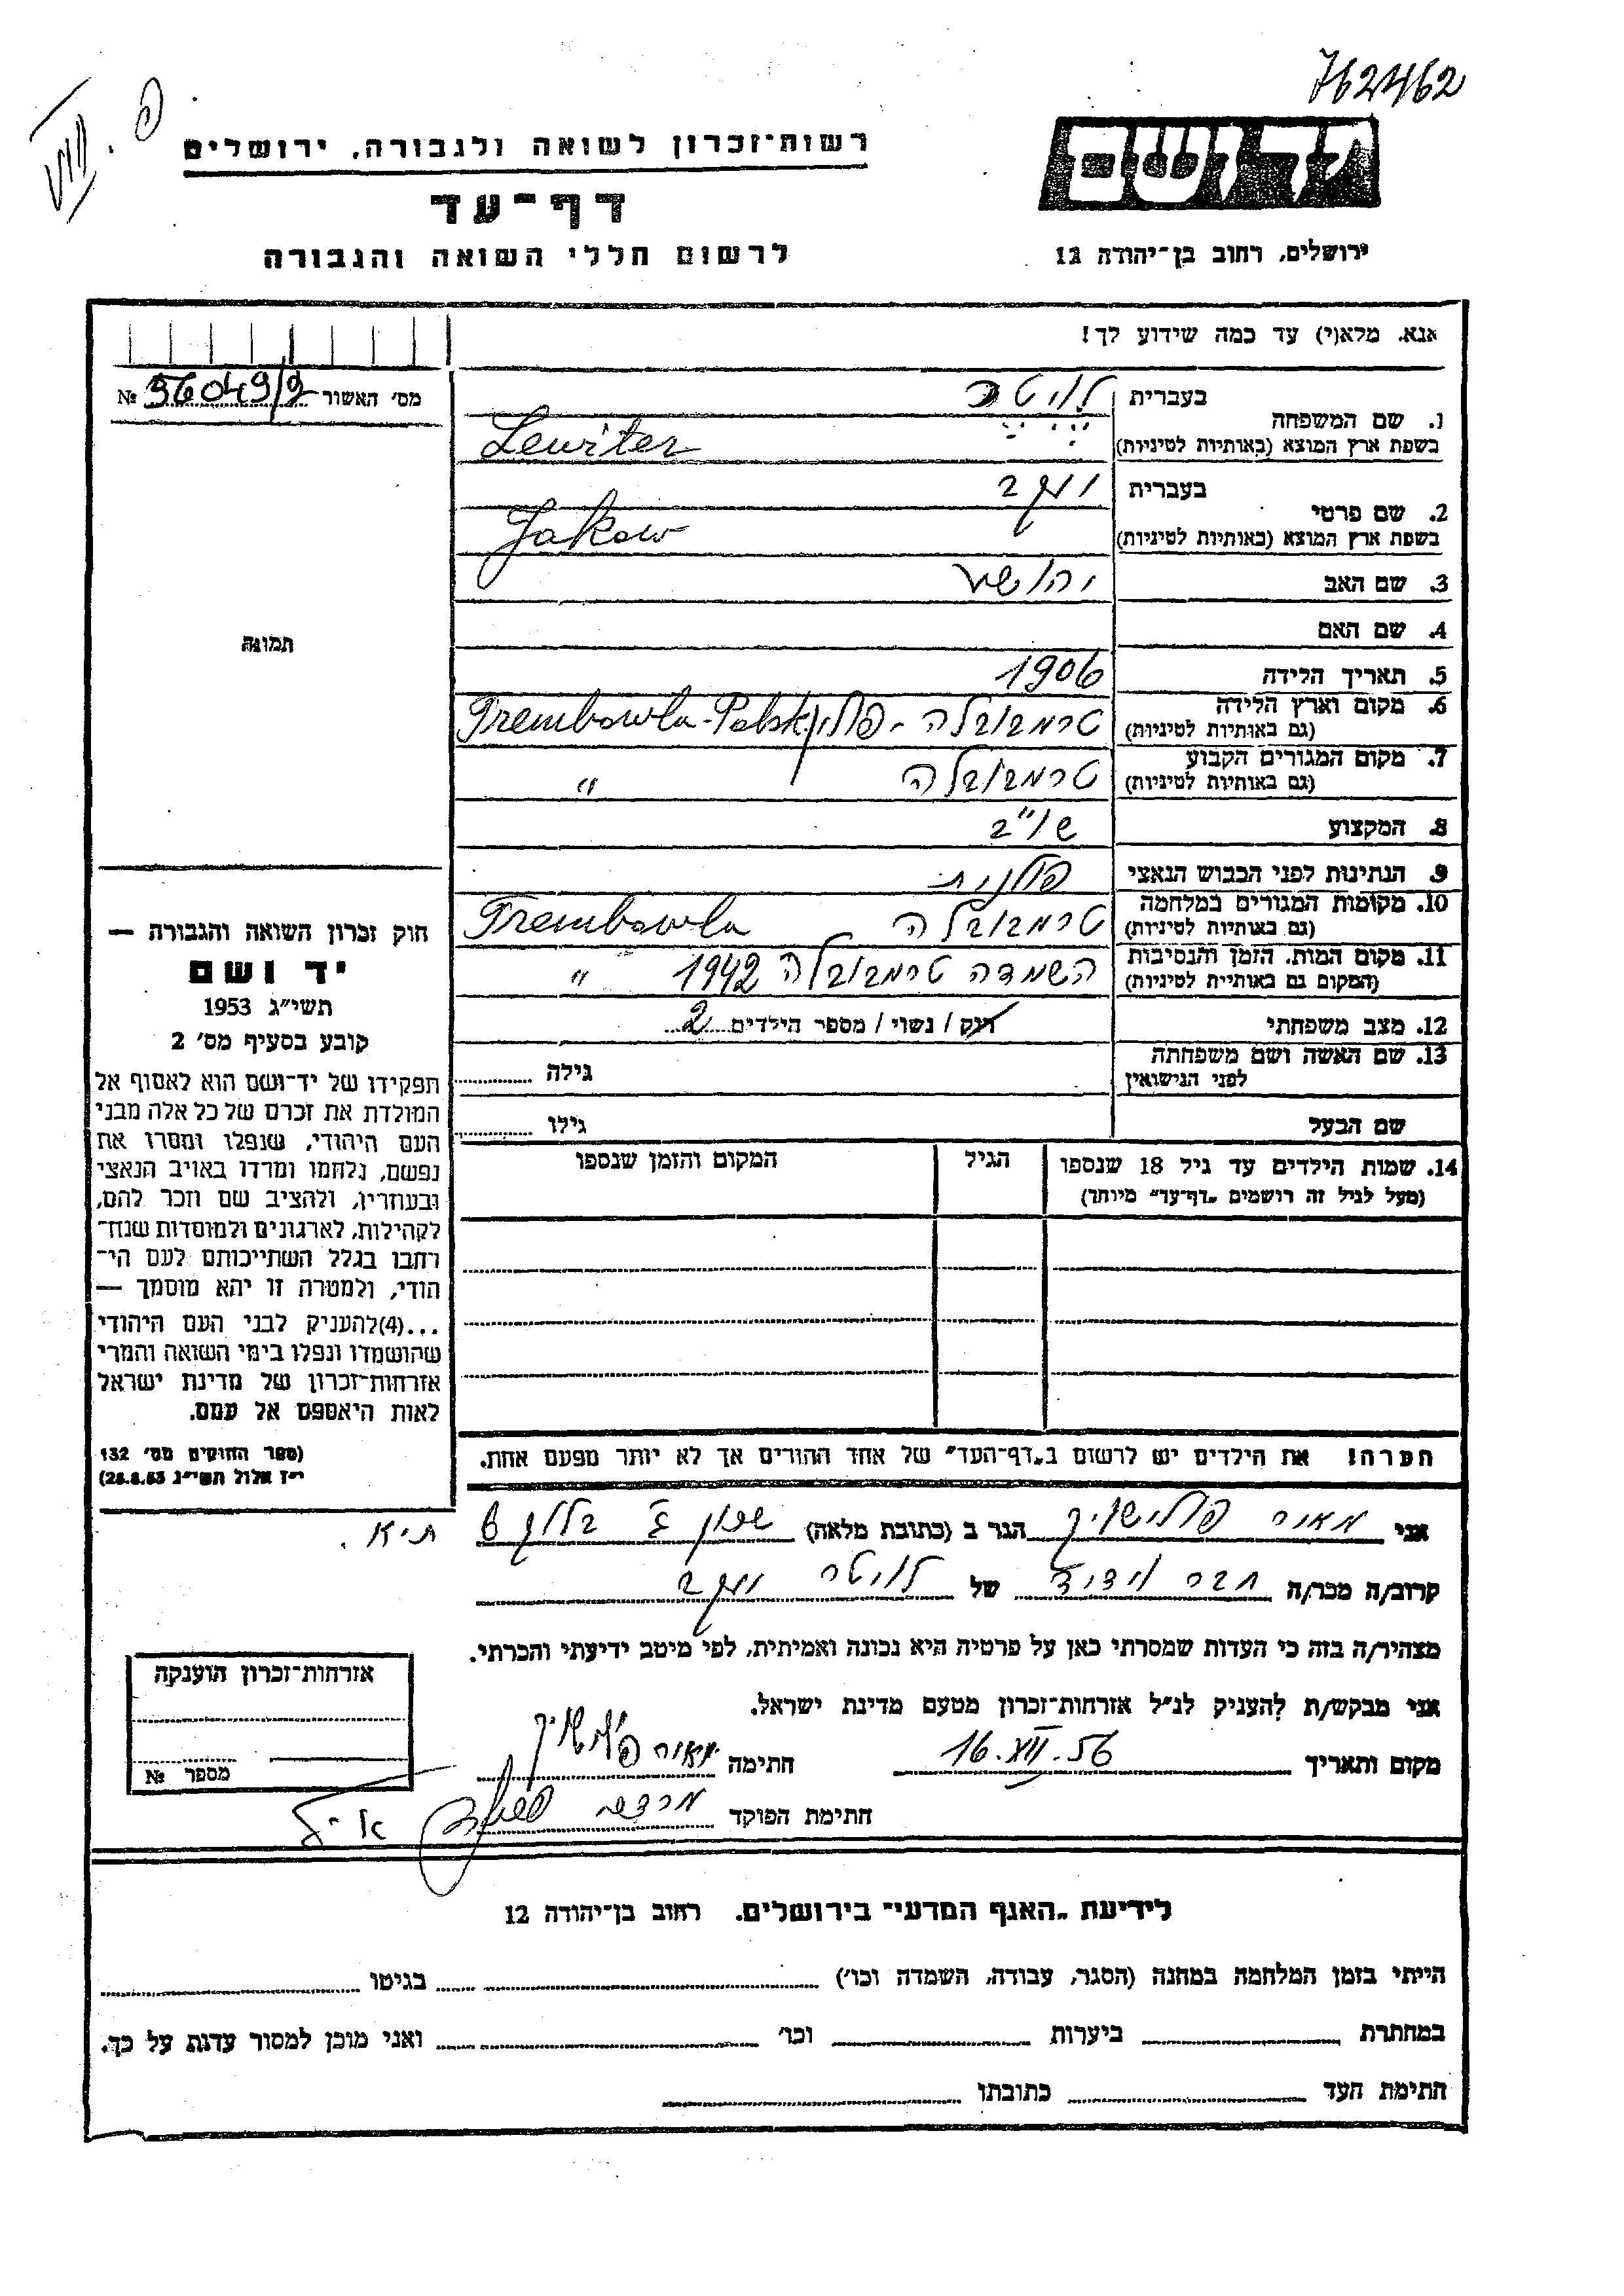 762462
פ. VIII
רשות־זכרון לשואה ולגבורה, ירושלים
יד ושם
דף־עד
לרשום חללי השואה והגבורה
ירושלים, רחוב בן־יהודה 12
אנא, מלא(י) עד כמה שידוע לך!
מס׳ האשור 56049/2 №
1. שם המשפחה בעברית לויטר
בשפת ארץ המוצא (באותיות לטיניות) Lewiter
2. שם פרטי בעברית יעקב
בשפת ארץ המוצא (באותיות לטיניות) Jakow
3. שם האב יהושע
4. שם האם
תמונה
5. תאריך הלידה 1906
6. מקום וארץ הלידה (גם באותיות לטיניות) טרמבובלה - פולין Trembowla-Polska
7. מקום המגורים הקבוע (גם באותיות לטיניות) טרמבובלה "
8. המקצוע שו"ב
9. הנתינות לפני הכבוש הנאצי פולנית
10. מקומות המגורים במלחמה (גם באותיות לטיניות) טרמבובלה Trembowla
11. מקום המות, הזמן והנסיבות (המקום גם באותיות לטיניות) השמדה טרמבובלה 1942 "
12. מצב משפחתי רוק / נשוי / מספר הילדים 2
13. שם האשה ושם משפחתה לפני הנישואין גילה
שם הבעל גילו
14. שמות הילדים עד גיל 18 שנספו הגיל המקום והזמן שנספו
(מעל לגיל זה רושמים „דף־עד״ מיוחד)
חוק זכרון השואה והגבורה —
יד ושם
תשי״ג 1953
קובע בסעיף מס׳ 2
תפקידו של יד־ושם הוא לאסוף אל
המולדת את זכרם של כל אלה מבני
העם היהודי, שנפלו ומסרו את
נפשם, נלחמו ומרדו באויב הנאצי
ובעוזריו, ולהציב שם וזכר להם,
לקהילות, לארגונים ולמוסדות שנח־
רחבו בגלל השתייכותם לעם הי־
הודי, ולמטרה זו יהא מוסמך —
...(4)להעניק לבני העם היהודי
שהושמדו ונפלו בימי השואה והמרי
אזרחות־זכרון של מדינת ישראל
לאות היאספם אל עמם.
(ספר החוקים מס׳ 132
י״ז אלול תשי״ג 28.8.53)
הערה! את הילדים יש לרשום ב„דף־העד״ של אחד ההורים אך לא יותר מפעם אחת.
אני מאיר הגר ב (כתובת מלאה) שכון ג׳ בלוק 6
ת"א.
קרוב/ה מכר/ה חבר וידיד של לויטר יעקב
מצהיר/ה בזה כי העדות שמסרתי כאן על פרטיה היא נכונה ואמיתית, לפי מיטב ידיעתי והכרתי.
אני מבקש/ת להעניק לנ״ל אזרחות־זכרון מטעם מדינת ישראל.
מקום ותאריך 16.XII.56 חתימה מאיר
חתימת הפוקד מרדכי
אזרחות־זכרון הוענקה
מספר №
לידיעת „האגף המדעי״ בירושלים, רחוב בן־יהודה 12
הייתי בזמן המלחמה במחנה (הסגר, עבודה, השמדה וכו׳) בגיטו
במחתרת ביערות וכו׳ ואני מוכן למסור עדות על כך.
חתימת העד כתובתו